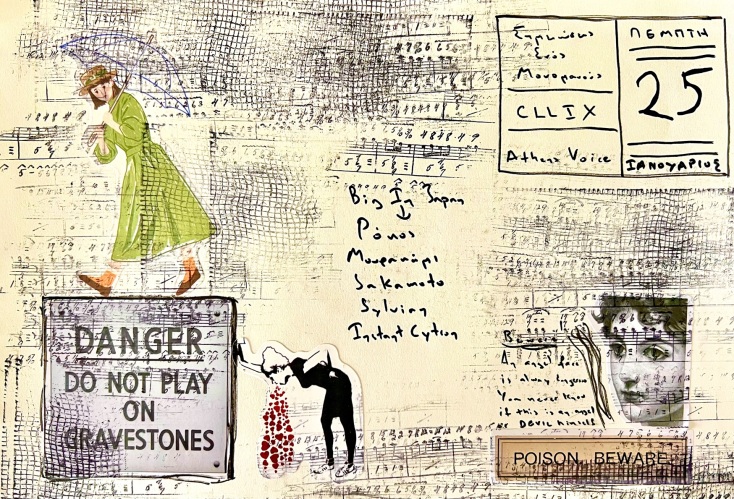 Σημειώσεις
Ενός
Μονομανούς
CLLIX
Athens Voice
ΠΕΜΠΤΗ
25
ΙΑΝΟΥΑΡΙΟΣ
Big In Japan
↓
Ρόνος
Μουρακάμι
Sakamoto
Sylvian
Instant Cytron
DANGER
DO NOT PLAY
ON
GRAVESTONES
Beware
An angel face
is always
You never know
if this is an angel
or DEVIL himself
POISON. BEWARE